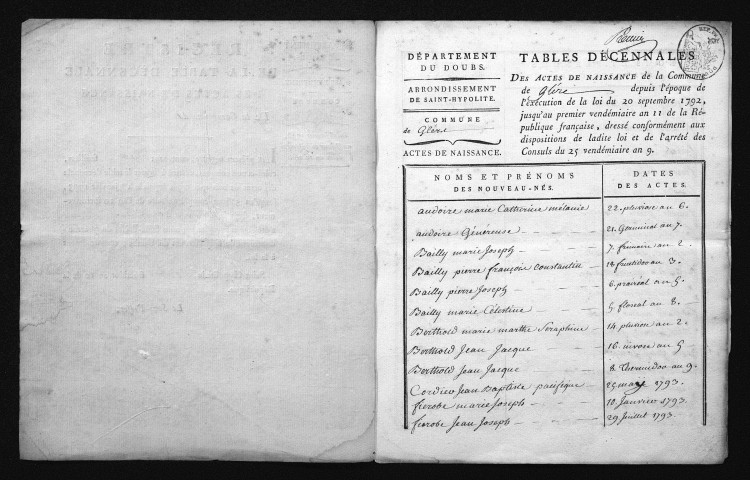 DÉPARTEMENT
DU DOUBS.
ARRONDISSEMENT
DE SAINT-HYPOLITE.
COMMUNE
de Glère
ACTES DE NAISSANCE.
TABLES DÉCENNALES
DES ACTES DE NAISSANCE de la Commune
de glère depuis l'époque de
l'éxécution de la loi du 20 septembre 1792,
jusqu'au premier vendémiaire an 11 de la Ré-
publique française, dressé conformément aux
dispositions de ladite loi et de l'arrêté des
Consuls du 25 vendémiaire an 9.
NOMS ET PRÉNOMS
DES NOUVEAU-NÉS.
DATES
DES ACTES.
audoire marie Catherine mélanie 22. pluviose an 6.
audoire Généreuse 21. Germinal an 7.
Bailly marie Joseph 7. frimaire an 2.
Bailly pierre françois Constantin 18 fructidor an 3.
Bailly pierre Joseph 6. prairéal an 5.
Bailly marie Célestine 5 floréal an 8.
Berthold marie marthe Séraphine 14. pluviose an 2.
Berthold Jean Jacque 16. nivose an 5
Berthold Jean Jacque 8. Thermidor an 9.
Cordier Jean Baptiste pacifique 25 1793.
marie Joseph 10. Janvier 1793
Jean Joseph 29 Juillet 1793.